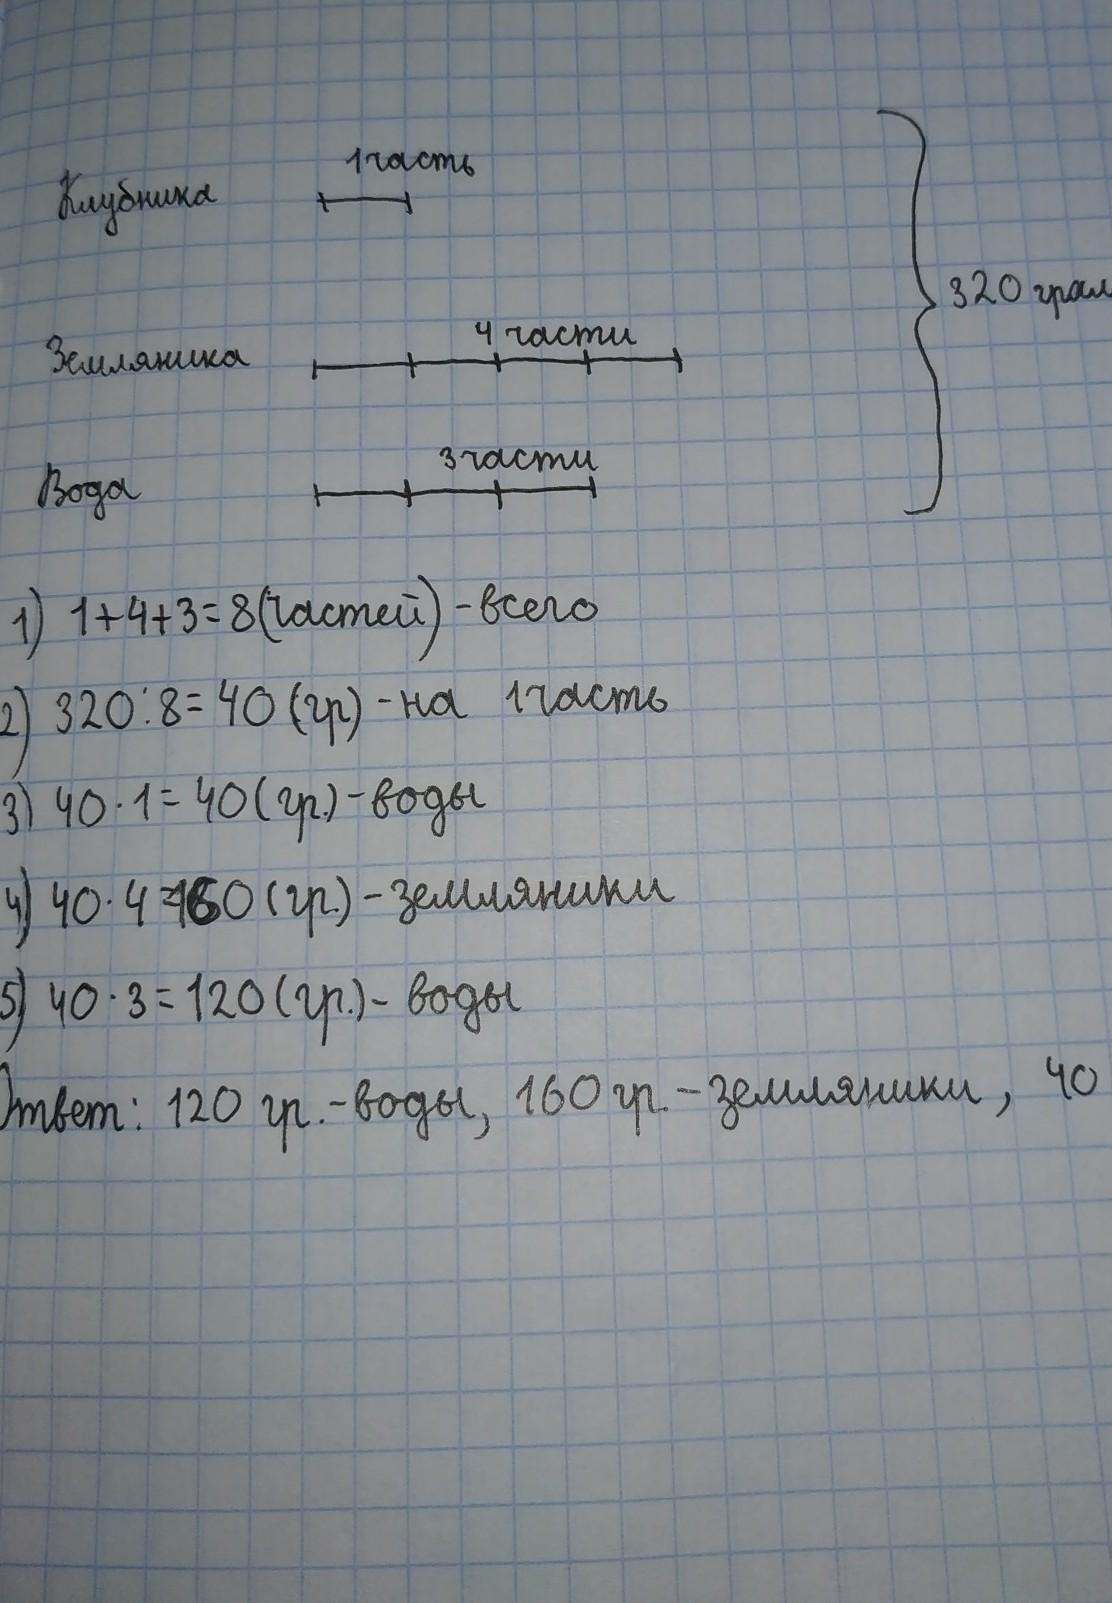 1 часть
Клубника
320 грам
4 части
Земляника
3 части
Вода
1) 1+4+3=8(частей)-всего
2) 320:8=40(гр)-на 1 часть
3) 40·1=40(гр.)-воды
4) 40·4=160(гр.)-земляники
5) 40·3=120(гр.)-воды
Ответ: 120 гр.-воды, 160 гр.-земляники, 40